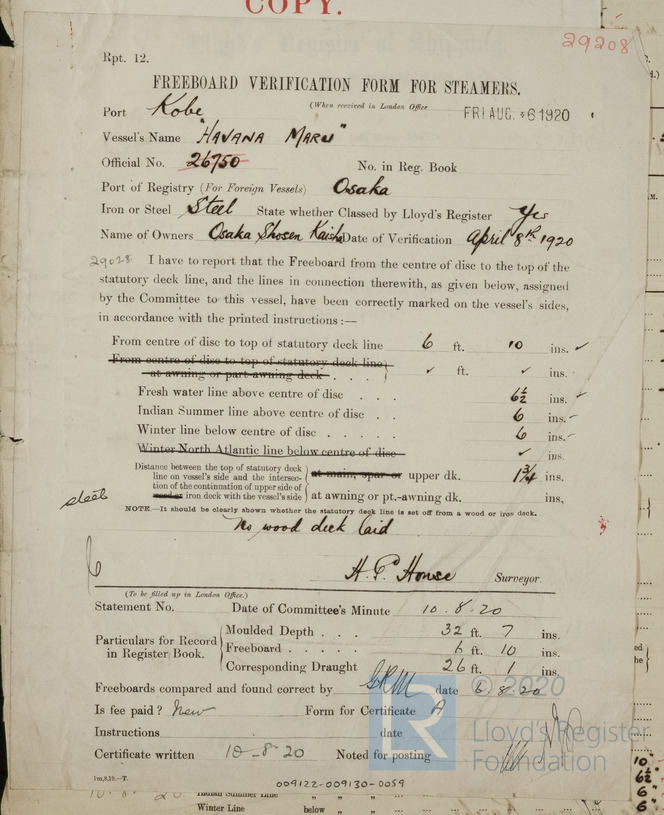 COPY.
29208
Rpt. 12.
FREEBOARD VERIFICATION FORM FOR STEAMERS.
Port Kobe (When received in London Office FRI AUG. 6 1920
Vessel's Name "HAVANA MARU"
Official No. 26750 No. in Reg. Book
Port of Registry (For Foreign Vessels) Osaka
Iron or Steel Steel State whether Classed by Lloyd's Register Yes
Name of Owners Osaka Shosen Kaisha Date of Verification April 8th 1920
29028 I have to report that the Freeboard from the centre of disc to the top of the
statutory deck line, and the lines in connection therewith, as given below, assigned
by the Committee to this vessel, have been correctly marked on the vessel's sides,
in accordance with the printed instructions :—
From centre of disc to top of statutory deck line 6 ft. 10 ins. ✓
From centre of disc to top of statutory deck line
at awning or part awning deck . . . ✓ ft. ✓ ins.
Fresh water line above centre of disc . . . 6½ ins. ✓
Indian Summer line above centre of disc . . 6 ins.
Winter line below centre of disc . . . . . 6 ins.
Winter North Atlantic line below centre of disc ✓ ins.
Distance between the top of statutory deck
line on vessel's side and the intersec-
tion of the continuation of upper side of
wood or iron deck with the vessel's side
at main, spar or upper dk. 1¾ ins.
at awning or pt.-awning dk. ins,
steel
NOTE.—It should be clearly shown whether the statutory deck line is set off from a wood or iron deck.
No wood deck laid
H. P. Howse Surveyor.
(To be filled up in London Office.)
Statement No. Date of Committee's Minute 10.8.20
Particulars for Record
in Register Book.
Moulded Depth . . . 32 ft. 7 ins.
Freeboard . . . . . 6 ft. 10 ins.
Corresponding Draught 26 ft. 1 ins.
Freeboards compared and found correct by date 6.8.20
Is fee paid? New Form for Certificate A
Instructions date
Certificate written 10-8-20 Noted for posting
1m,8,19.—T.
009122-009130-0059
© 2020
Lloyd's Register
Foundation
LR
Indian Summer Line
Winter Line below „ „
10
6½
6
6